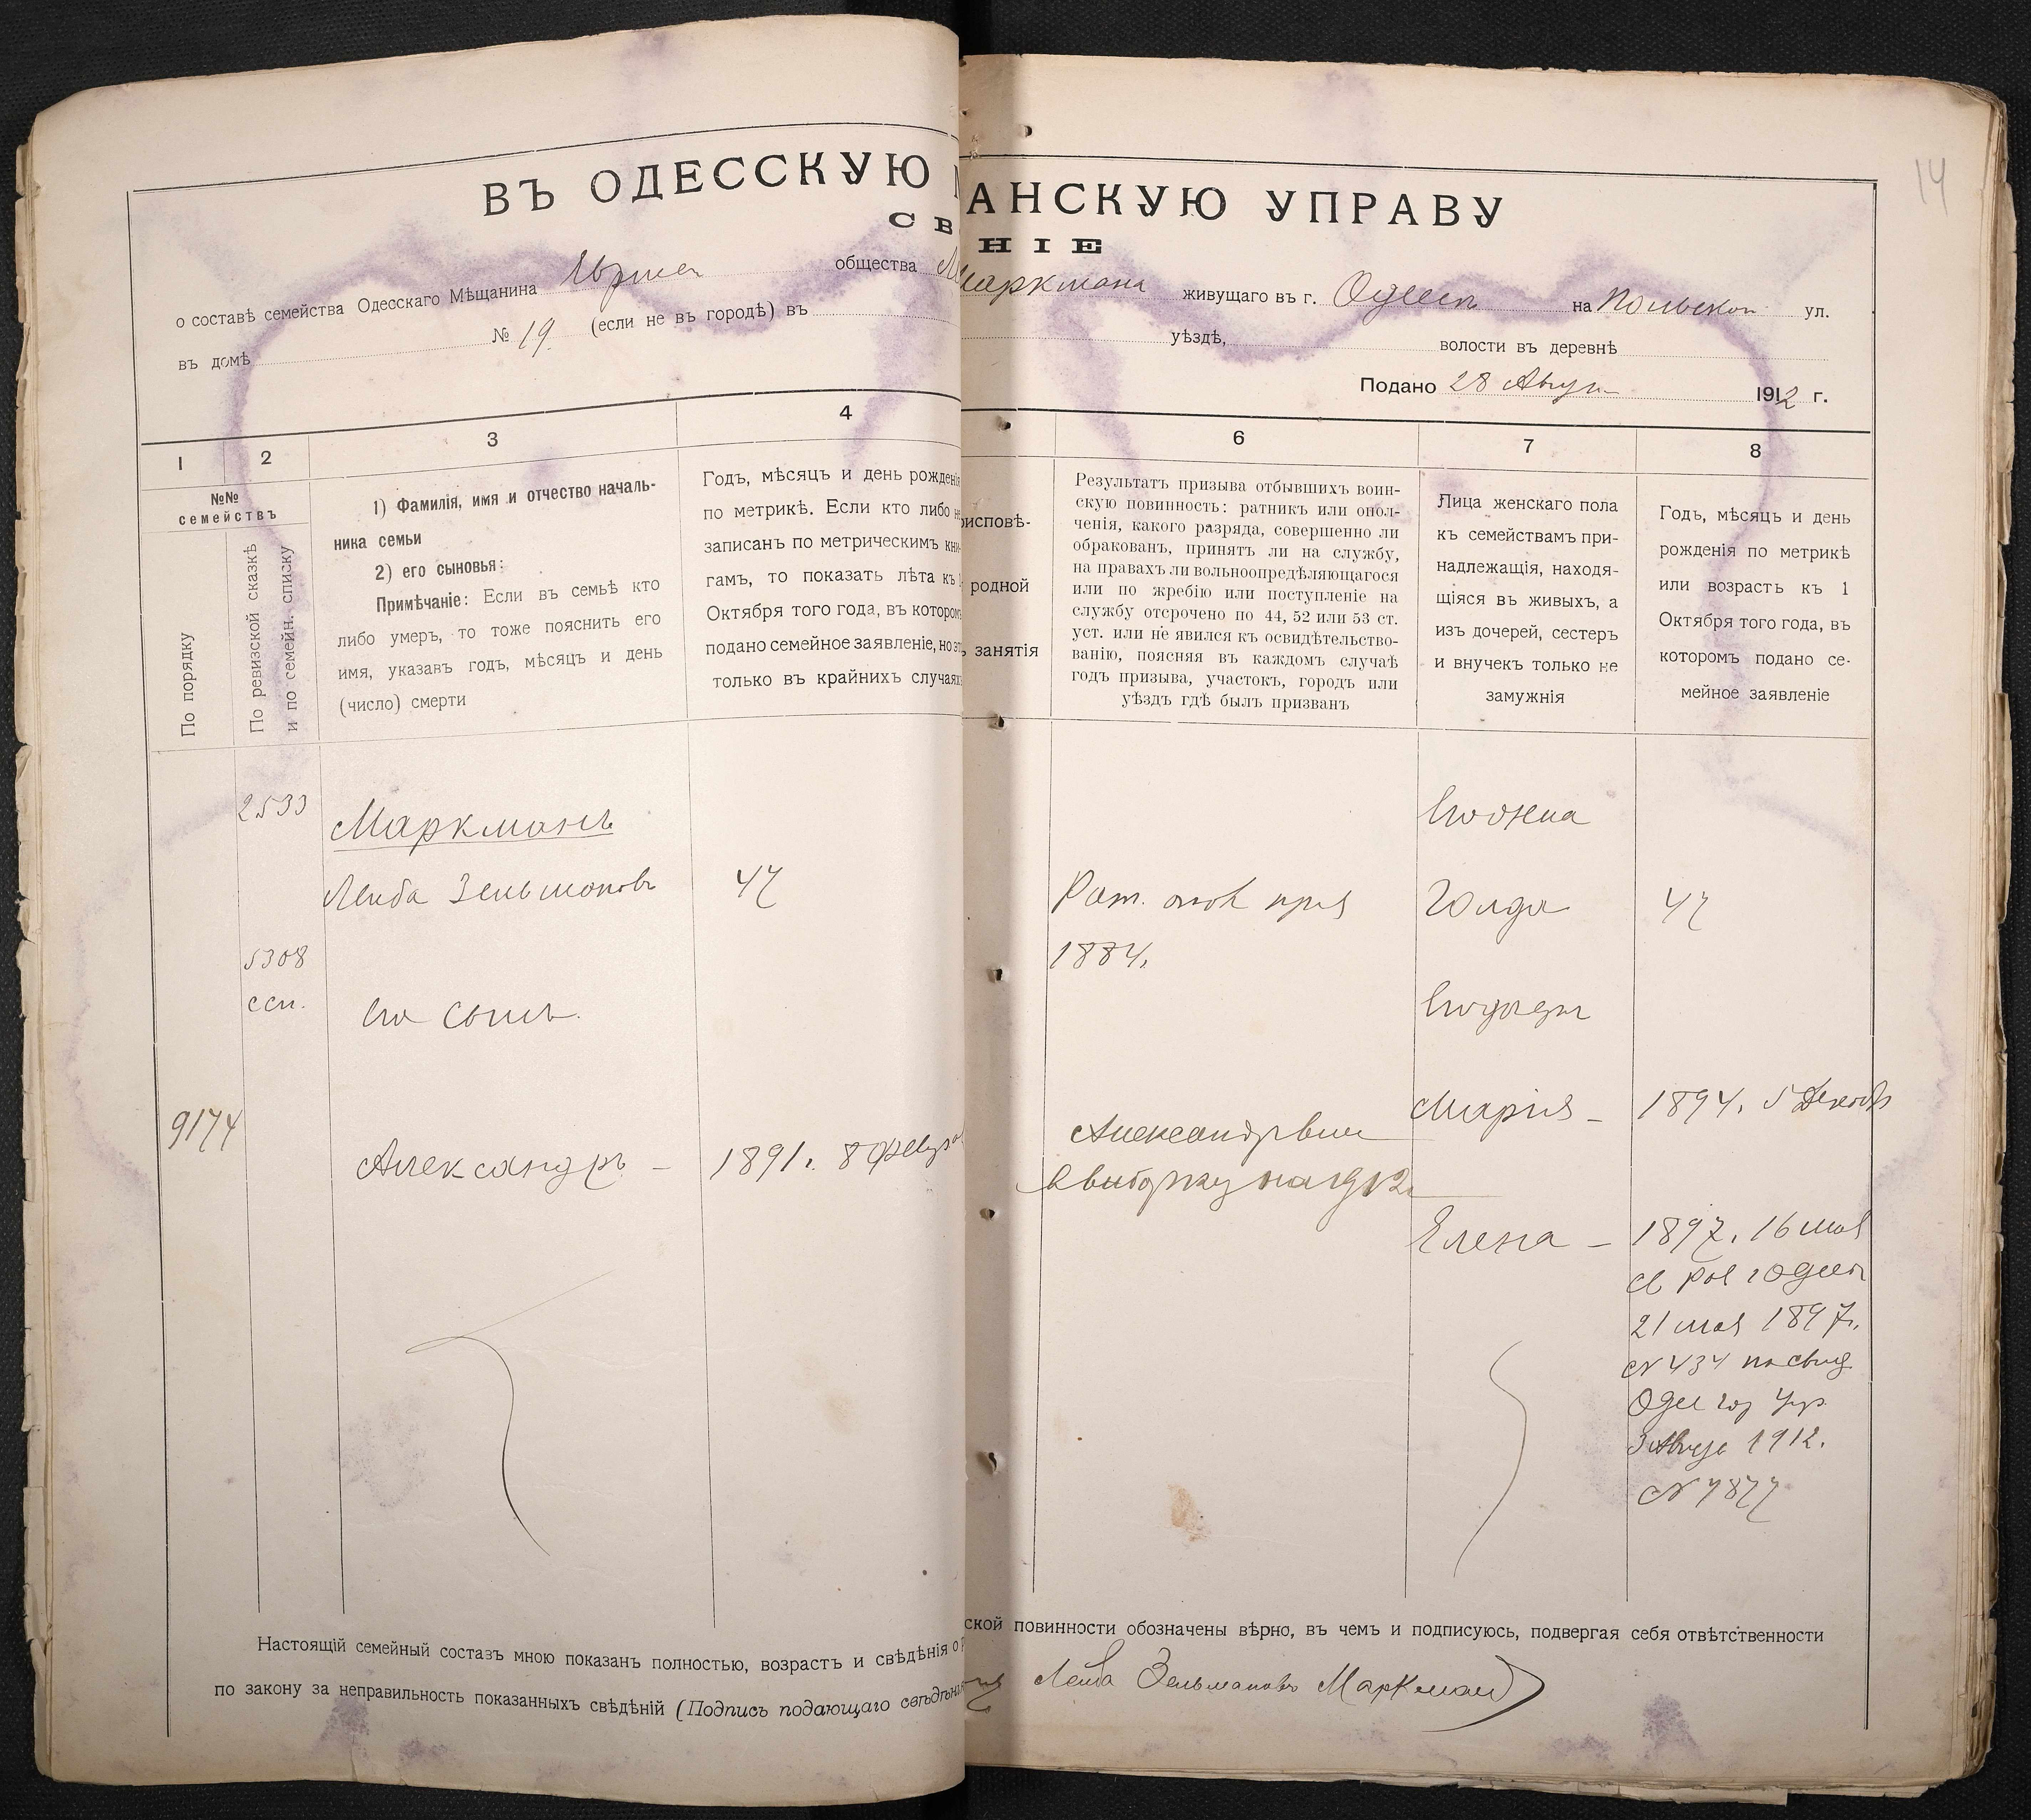 14
ВЪ ОДЕССКУЮ
АНСКУЮ УПРАВУ
СВ
НІЕ
о составѣ семейства Одесскаго Мѣщанина общества
Маркмана живущаго въ г. Одессѣ на Польской ул.
въ домѣ № 19 (если не въ городѣ) въ
уѣздѣ, волости въ деревнѣ
Подано 28 Август 1912 г.
1 2 3 4
6 7 8
№№
семействъ
По порядку
По ревизской сказкѣ
и по семейн. списку
1) Фамилія, имя и отчество началь-
ника семьи
2) его сыновья:
Примѣчаніе: Если въ семьѣ кто
либо умеръ, то тоже пояснить его
имя, указавъ годъ, мѣсяцъ и день
(число) смерти
Годъ, мѣсяцъ и день рожденія
по метрикѣ. Если кто либо не
записанъ по метрическимъ кни-
гамъ, то показать лѣта къ 1
Октября того года, въ которомъ
подано семейное заявленіе, но эт
только въ крайнихъ случаяхъ
рисповѣ-
родной
ъ занятія
Результатъ призыва отбывшихъ воин-
скую повинность: ратникъ или опол-
ченія, какого разряда, совершенно ли
обракованъ, принятъ ли на службу,
на правахъ ли вольноопредѣляющагося
или по жребію или поступленіе на
службу отсрочено по 44, 52 или 53 ст.
уст. или не явился къ освидѣтельство-
ванію, поясняя въ каждомъ случаѣ
годъ призыва, участокъ, городъ или
уѣздъ гдѣ былъ призванъ
Лица женскаго пола
къ семействамъ при-
надлежащія, находя-
щіяся въ живыхъ, а
изъ дочерей, сестеръ
и внучекъ только не
замужнія
Годъ, мѣсяцъ и день
рожденія по метрикѣ
или возрастъ къ 1
Октября того года, въ
которомъ подано се-
мейное заявленіе
2533
Маркманъ
Лейба Зельмановъ 47
5308
ссп.
Его сынъ
9174
Александръ – 1891. 8 Феврал
Рат. опол при
1884.
Александръ вне
в выборку на 1912
Его жена
Голда 47
Его дочери
Марія – 1894. 5 Декабр
Елена – 1897. 16 мая
21 мая 1897.
№ 434 по свид
Одес гор Упр
3 Авгус 1912.
№ 7877
Настоящій семейный составъ мною показанъ полностью, возрастъ и свѣдѣнія о
ской повинности обозначены вѣрно, въ чемъ и подписуюсь, подвергая себя отвѣтственности
по закону за неправильность показанныхъ свѣдѣній (Подпись подающаго свѣдѣнія
Лейба Зельмановъ Маркман)